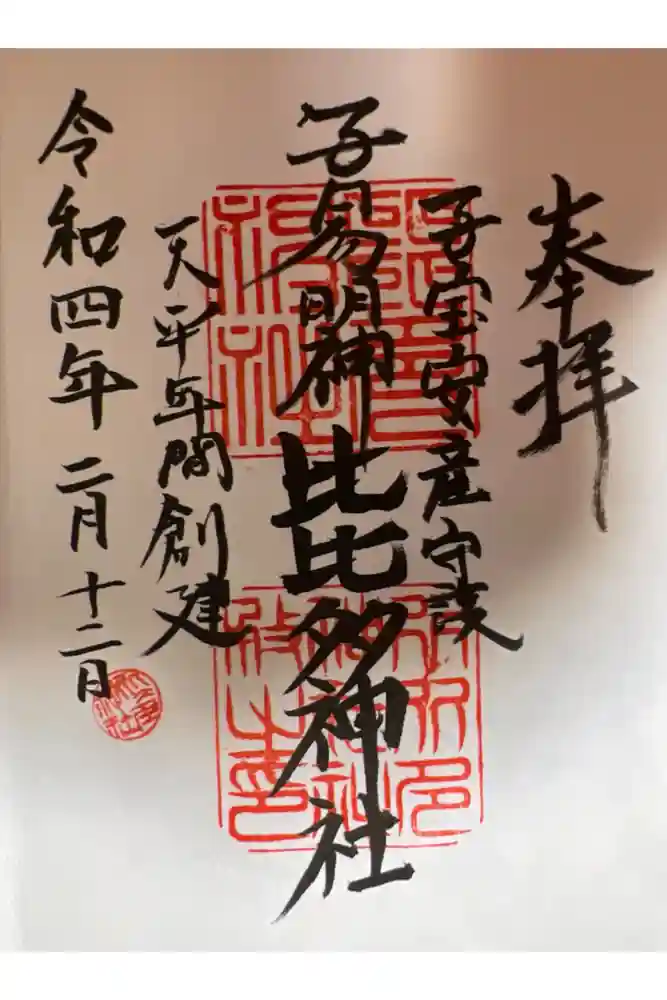 奉拝
子宝安産守護
子易明神 比比多神社
天平年間創建
令和四年二月十二日